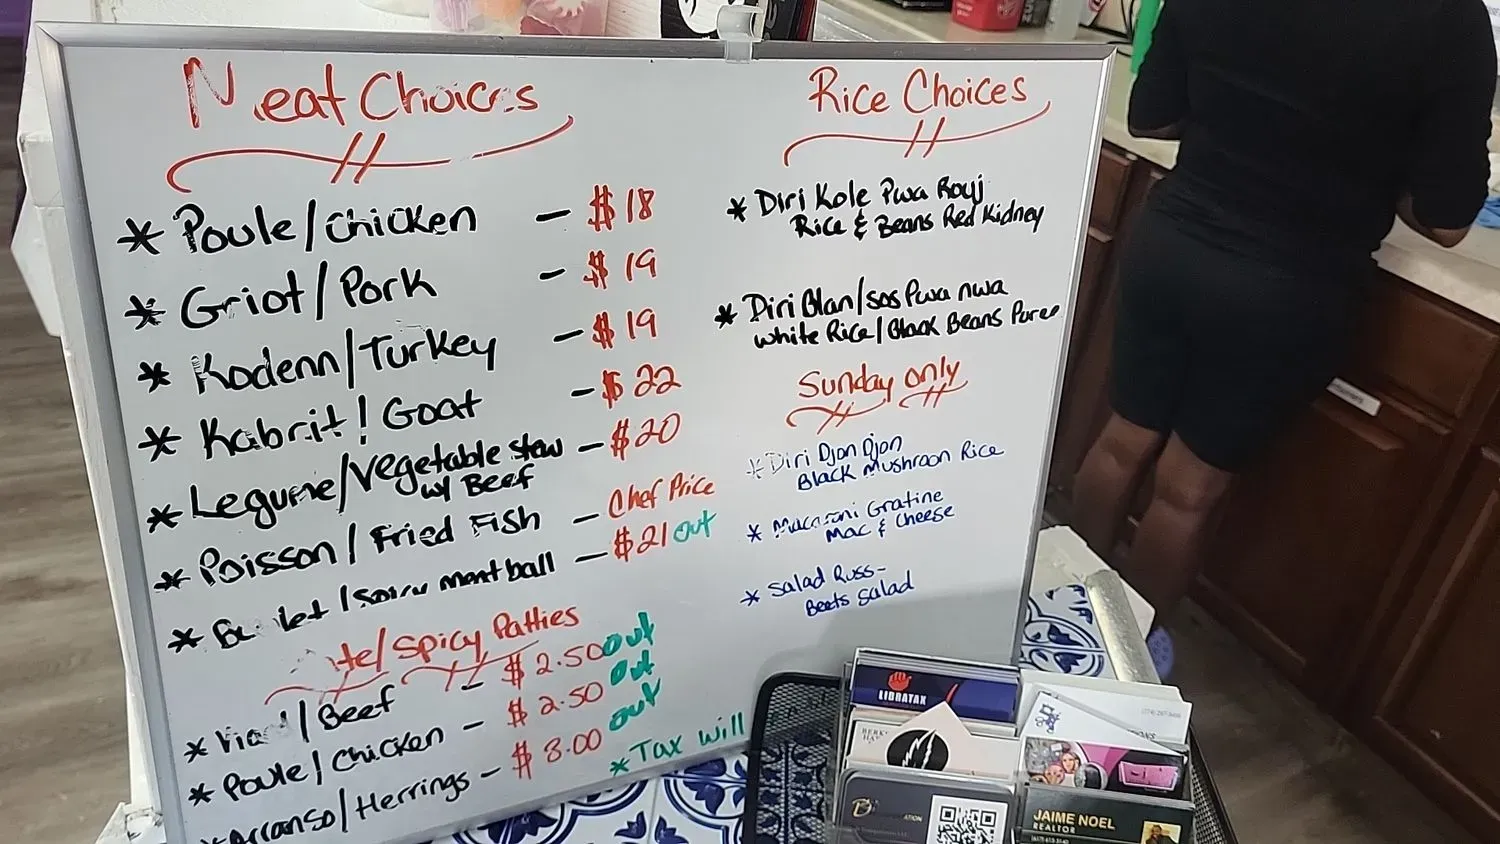 Meat Choices
* Poule/chicken - $18
* Griot/Pork - $19
* Kodenn/Turkey - $19
* Kabrit! Goat - $22
* Legume/Vegetable stew - $20
w/ Beef
* Poisson/Fried Fish - Chef Price
* /Spicy meatball - $21 out
/Spicy Patties
* /Beef - $2.50 out
* Poule/Chicken - $2.50 out
* Arranso/Herrings - $3.00 out
* Tax will
Rice Choices
* Diri Kole Pwa Rouj
Rice & Beans Red Kidney
* Diri Blan/sos Pwa nwa
white Rice/Black Beans Puree
Sunday only
* Diri Djon Djon
Black Mushroon Rice
* Macaroni Gratine
Mac & Cheese
* Salad Russ-
Beets Salad
LIBRATAX
JAIME NOEL
REALTOR